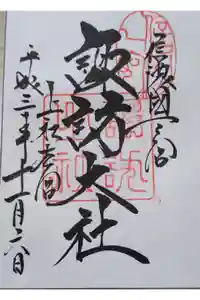 信濃國一之宮
諏訪大社
上社本宮
平成三十年十一月六日